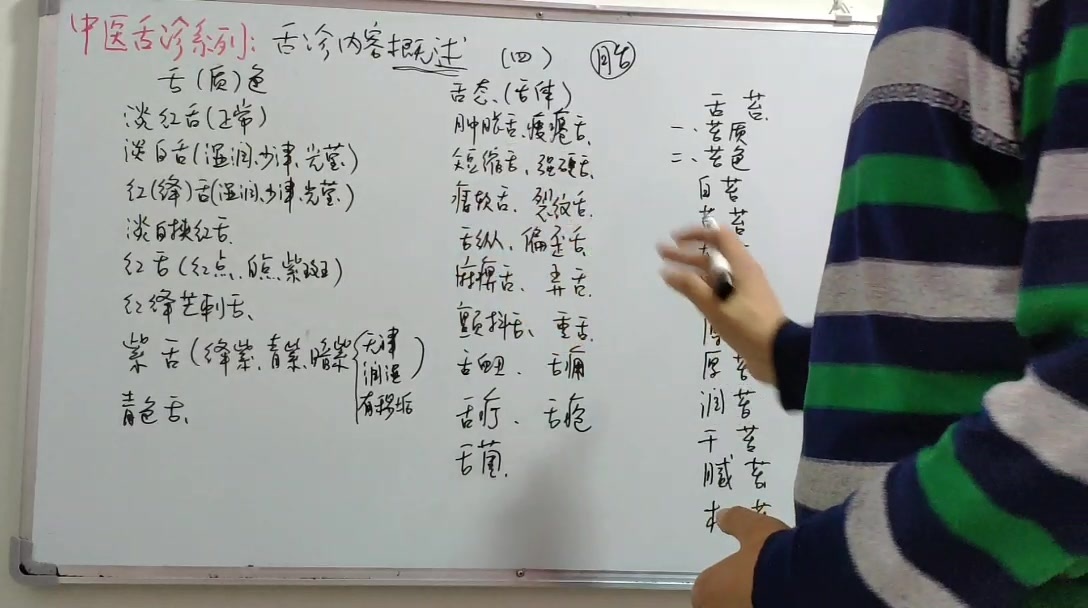 中医舌诊系列: 舌诊内容概述 (四)
舌(质)色
淡红舌(正常)
淡白舌(湿润、少津、光莹)
红(绛)舌(湿润、少津、光莹)
淡白挟红舌.
红舌(红点、白点、紫斑)
红绛芒刺舌、
紫舌(绛紫、青紫、暗紫
无津
润湿
有秽垢
)
青色舌、
舌态、(舌体)
肿胀舌、瘦瘪舌、
短缩舌、强硬舌、
痿软舌、裂纹舌.
舌纵、偏歪舌、
麻痹舌、弄舌.
颤抖舌、重舌.
舌衄、舌痈
舌疔、舌疮
舌菌.
舌苔
一、苔质
二、苔色
白苔
苔
厚苔
润苔
干苔
腻苔